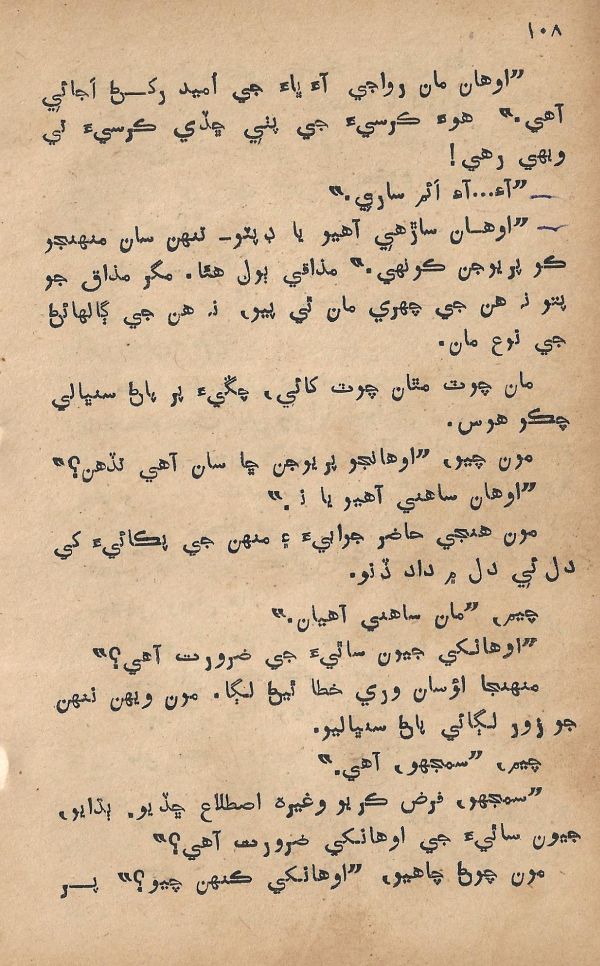 ۱۰۸
”اوهان مان رواجي آءُ ڀاءُ جي اُميد رکڻ اجائي
آهي.“ هوءَ ڪرسيءَ جي پٺي ڇڏي ڪرسيءَ تي
ويهي رهي!
— ”آءُ...آءُ اَئم ساري.“
— ”اوهان ساڙهي آهيو يا ڊپٽو- تنهن سان منهنجو
ڪو پريوجن ڪونهي.“ مذاقي ٻول هئا. مگر مذاق جو
پتو نہ هن جي چهري مان ٿي پيو، نہ هن جي ڳالهائڻ
جي نوع مان.
مان چوٽ مٿان چوٽ کائي، چڱيءَ پر پاڻ سنڀالي
چڪو هوس.
مون چيو، ”اوهانجو پريوجن ڇا سان آهي تڏهن؟“
”اوهان ساهتي آهيو يا نہ.“
مون هنجي حاضر جوابيءَ ۽ منهن جي پڪائيءَ کي
دل ئي دل ۾ داد ڏنو.
چيم، ”مان ساهتي آهيان.“
”اوهانکي جيون ساٿيءَ جي ضرورت آهي؟“
منهنجا اؤسان وري خطا ٿيڻ لڳا. مون ويهن ننهن
جو زور لڳائي پاڻ سنڀاليو.
چيم، ”سمجهو، آهي.“
”سمجهو، فرض ڪريو وغيره اصطلاع ڇڏيو. ٻڌايو،
جيون ساٿيءَ جي اوهانکي ضرورت آهي؟“
مون چوڻ چاهيو، ”اوهانکي ڪنهن چيو؟“ پر